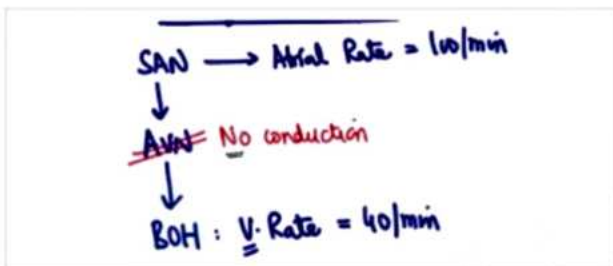 SAN → Atrial Rate = 100/min
↓
AVN No conduction
↓
BOH : V. Rate = 40/min